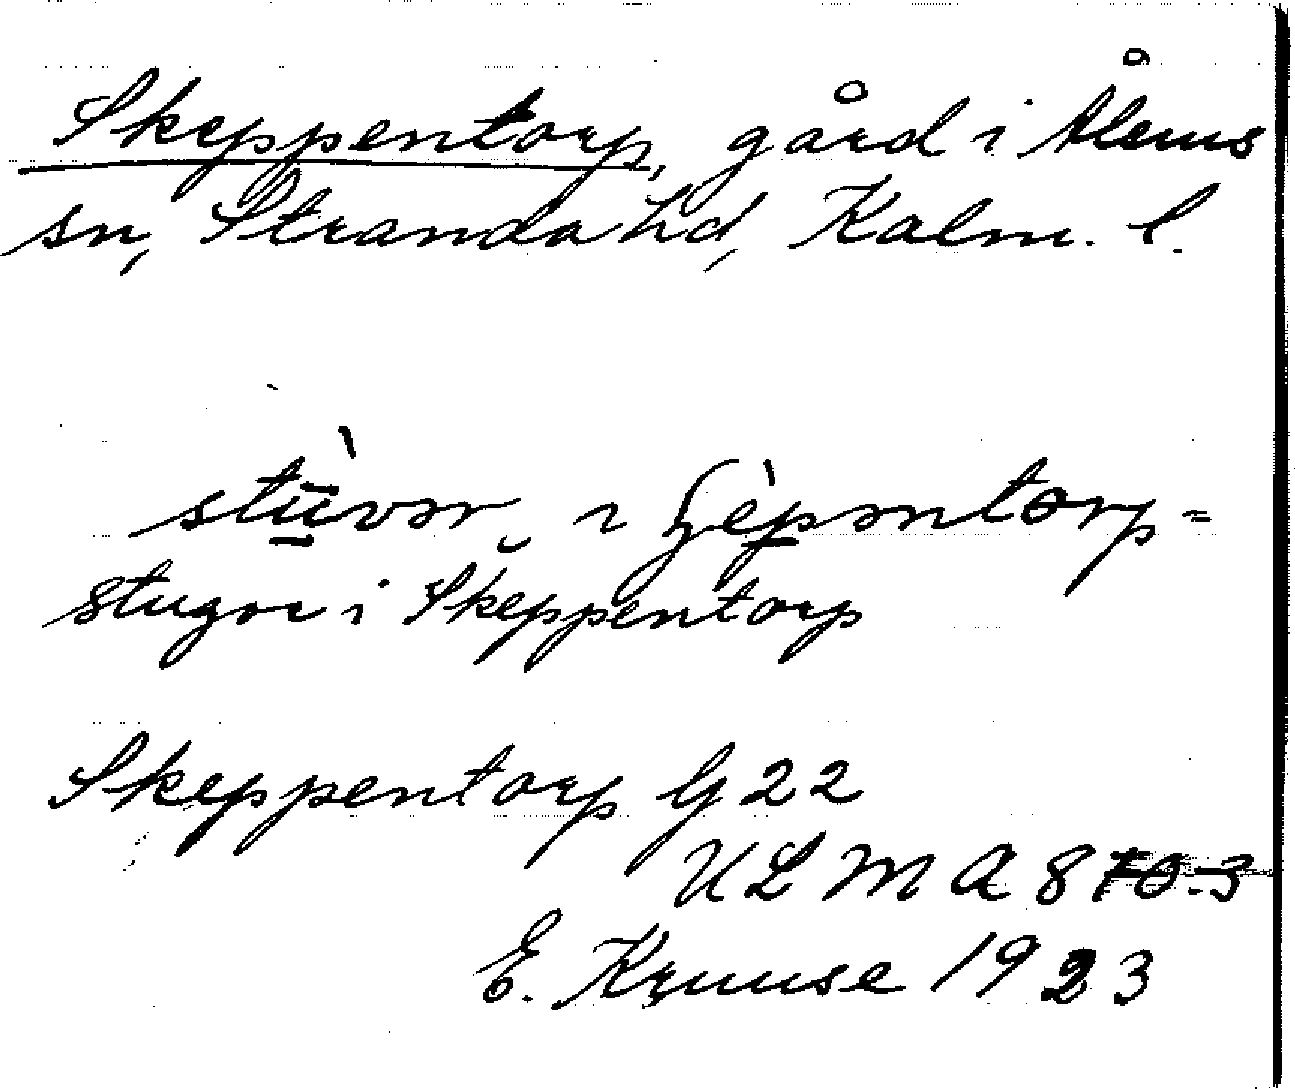 Skeppentorp, gård i Ålems
sn, Stranda hd, Kalm. l.
stugor i Skeppentorp
Skeppentorp G 22
ULMA 870:3
E. Kruuse 1923